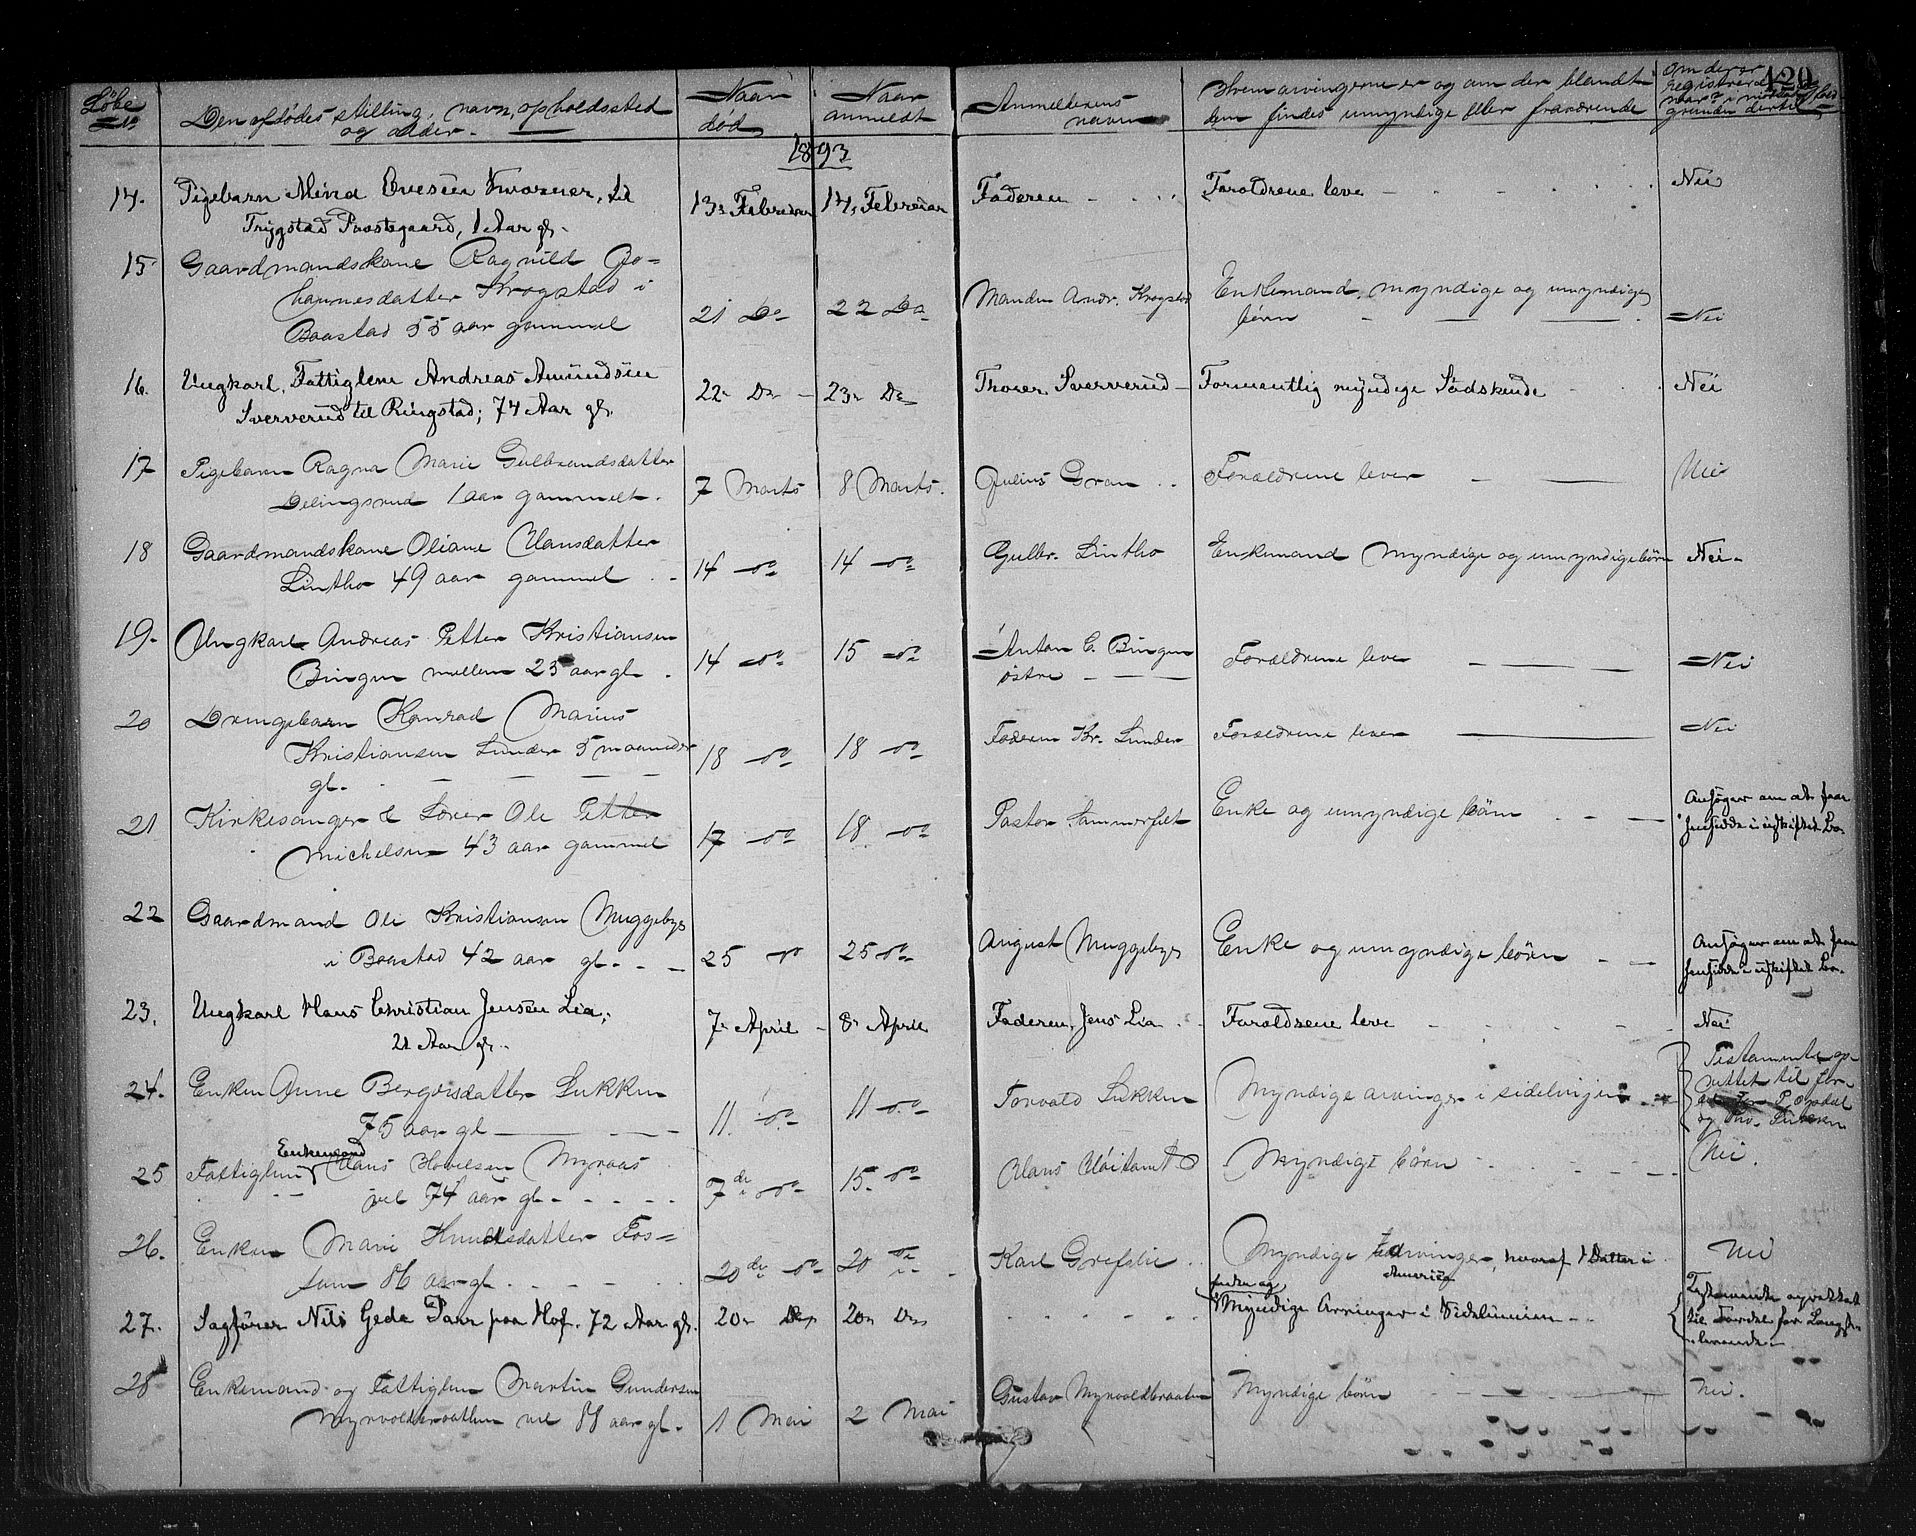 120
Løbe No
Den afdødes stilling, navn, opholdssted
og alder.
Naar
død
Naar
anmeldt
Anmelderens
navn
Hvem arvingerne er og om der blandt
dem findes umyndige eller fraværende
Om der er
registreret
grunden dertil
1893
14. Pigebarn Mina Evesen til
Trygstad Præstegaard, 1 Aar gl.
13. Februar 14. Februar Faderen Forældrene leve Nei
15 Gaardmandskone Ragnild Jo-
hannesdatter Krogstad i
Baastad 55 aar gammel
21 Do 22 Do Manden Andr. Krogstad Enkemand, myndige og umyndige
børn Nei
16. Ungkarl, Fattiglem Andreas Amundsen
Sververud til Ringstad; 74 Aar gl.
22. Do 23. Do Thorer Sververud Formentlig myndige Sødskende Nei
17 Pigebarn Ragna Marie Gulbrandsdatter
Delingsrud 1 aar gammelt.
7 Marts 8 Marts. Julius Gran Forældrene lever Nei
18 Gaardmandskone Oliane Hansdatter
Lintho 49 aar gammel
14 do 14 do Gulbr. Lintho Enkemand Myndige og umyndige børn Nei
19. Ungkarl Andreas Petter Kristiansen
Bingen mellem 23 aar gl.
14 do 15 do Anton C. Bingen
østre Forældrene lever Nei
20 Drengebarn Konrad Marius
Kristiansen Lunder 5 maaneder
gl.
18 do 18 do Faderen Kr. Lunder Forældrene lever Nei
21 Kirkesanger & Lærer Ole Petter
Michelsen 43 aar gammel
17 do 18 do Pastor Sommerfelt Enke og umyndige børn Ansøger om at faar
hensidde i uskiftet Bo.
22 Gaardmand Ole Kristiansen Muggebye
i Baastad 42 aar gl.
25 do 25 do August Muggebye Enke og umyndige børn Ansøger om at faar
hensidde i uskiftet Bo.
23. Ungkarl Hans Christian Jensen Lia,
21 Aar gl.
7. April 8. April Faderen, Jens Lia Forældrene leve Nei
24. Enken Anne Bergersdatter Lukken
75 aar gl
11. do 11 do Torvald Lukken Myndige arvinger i sidelinjen Testamente op-
rettet til for-
og Tho. Lukken
25 Fattiglem Enkemand Hans Hovelsen Myraas
vel 74 aar gl
7de do 15. do Myndige børn Nei.
26. Enken Mari Knudsdatter Fos-
sum 86 aar gl
20de do 20 do Karl Grefslie Myndige arvinger, hvoraf 1 Datter i
Amerika Nei
27. Sagfører Nils Geda Paur paa Hof. 72 Aar gl.
20. Do 20. Do Enke og
Myndige Arvinger i Sidelinien Testamente oprettet
til Fordel for Længst-
levende
28 Enkemand og Fattiglem Martin Gundersen
Myrvoldbraatten vel 88 aar gl.
1 Mai 2 Mai Gustav Myrvoldbraaten Myndige børn Nei.